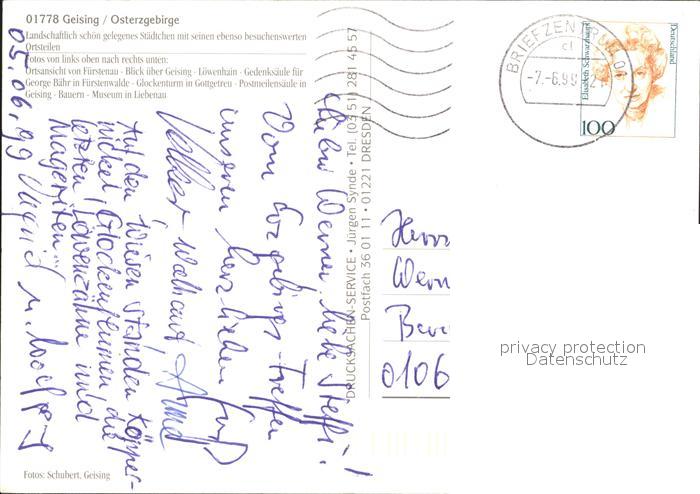 01778 Geising / Osterzgebirge
Landschaftlich schön gelegenes Städtchen mit seinen ebenso besuchenswerten
Ortsteilen
Fotos von links oben nach rechts unten:
Ortsansicht von Fürstenau · Blick über Geising · Löwenhain · Gedenksäule für
George Bähr in Fürstenwalde · Glockenturm in Gottgetreu · Postmeilensäule in
Geising · Bauern · Museum in Liebenau
Liebe Werner, liebe Steffi!
Vom Erzgebirgs-Treffen
unseren herzlichen Gruß
Volker Waltraud
Auf den Wiesen standen Körper-
nickel, Glockenblumen, die
letzten Löwenzähne und
Mageriten."
05.06.99 Sigrid u.
DRUCKSACHEN-SERVICE · Jürgen Synde · Tel. (03 51) 281 45 57
Postfach 36 01 11 · 01221 DRESDEN
BRIEFZENTRUM 01
-7.-6.99
Elisabeth Schwarzhaupt
Deutschland
100
Herrn
Wern
0106
privacy protection
Datenschutz
Fotos: Schubert, Geising